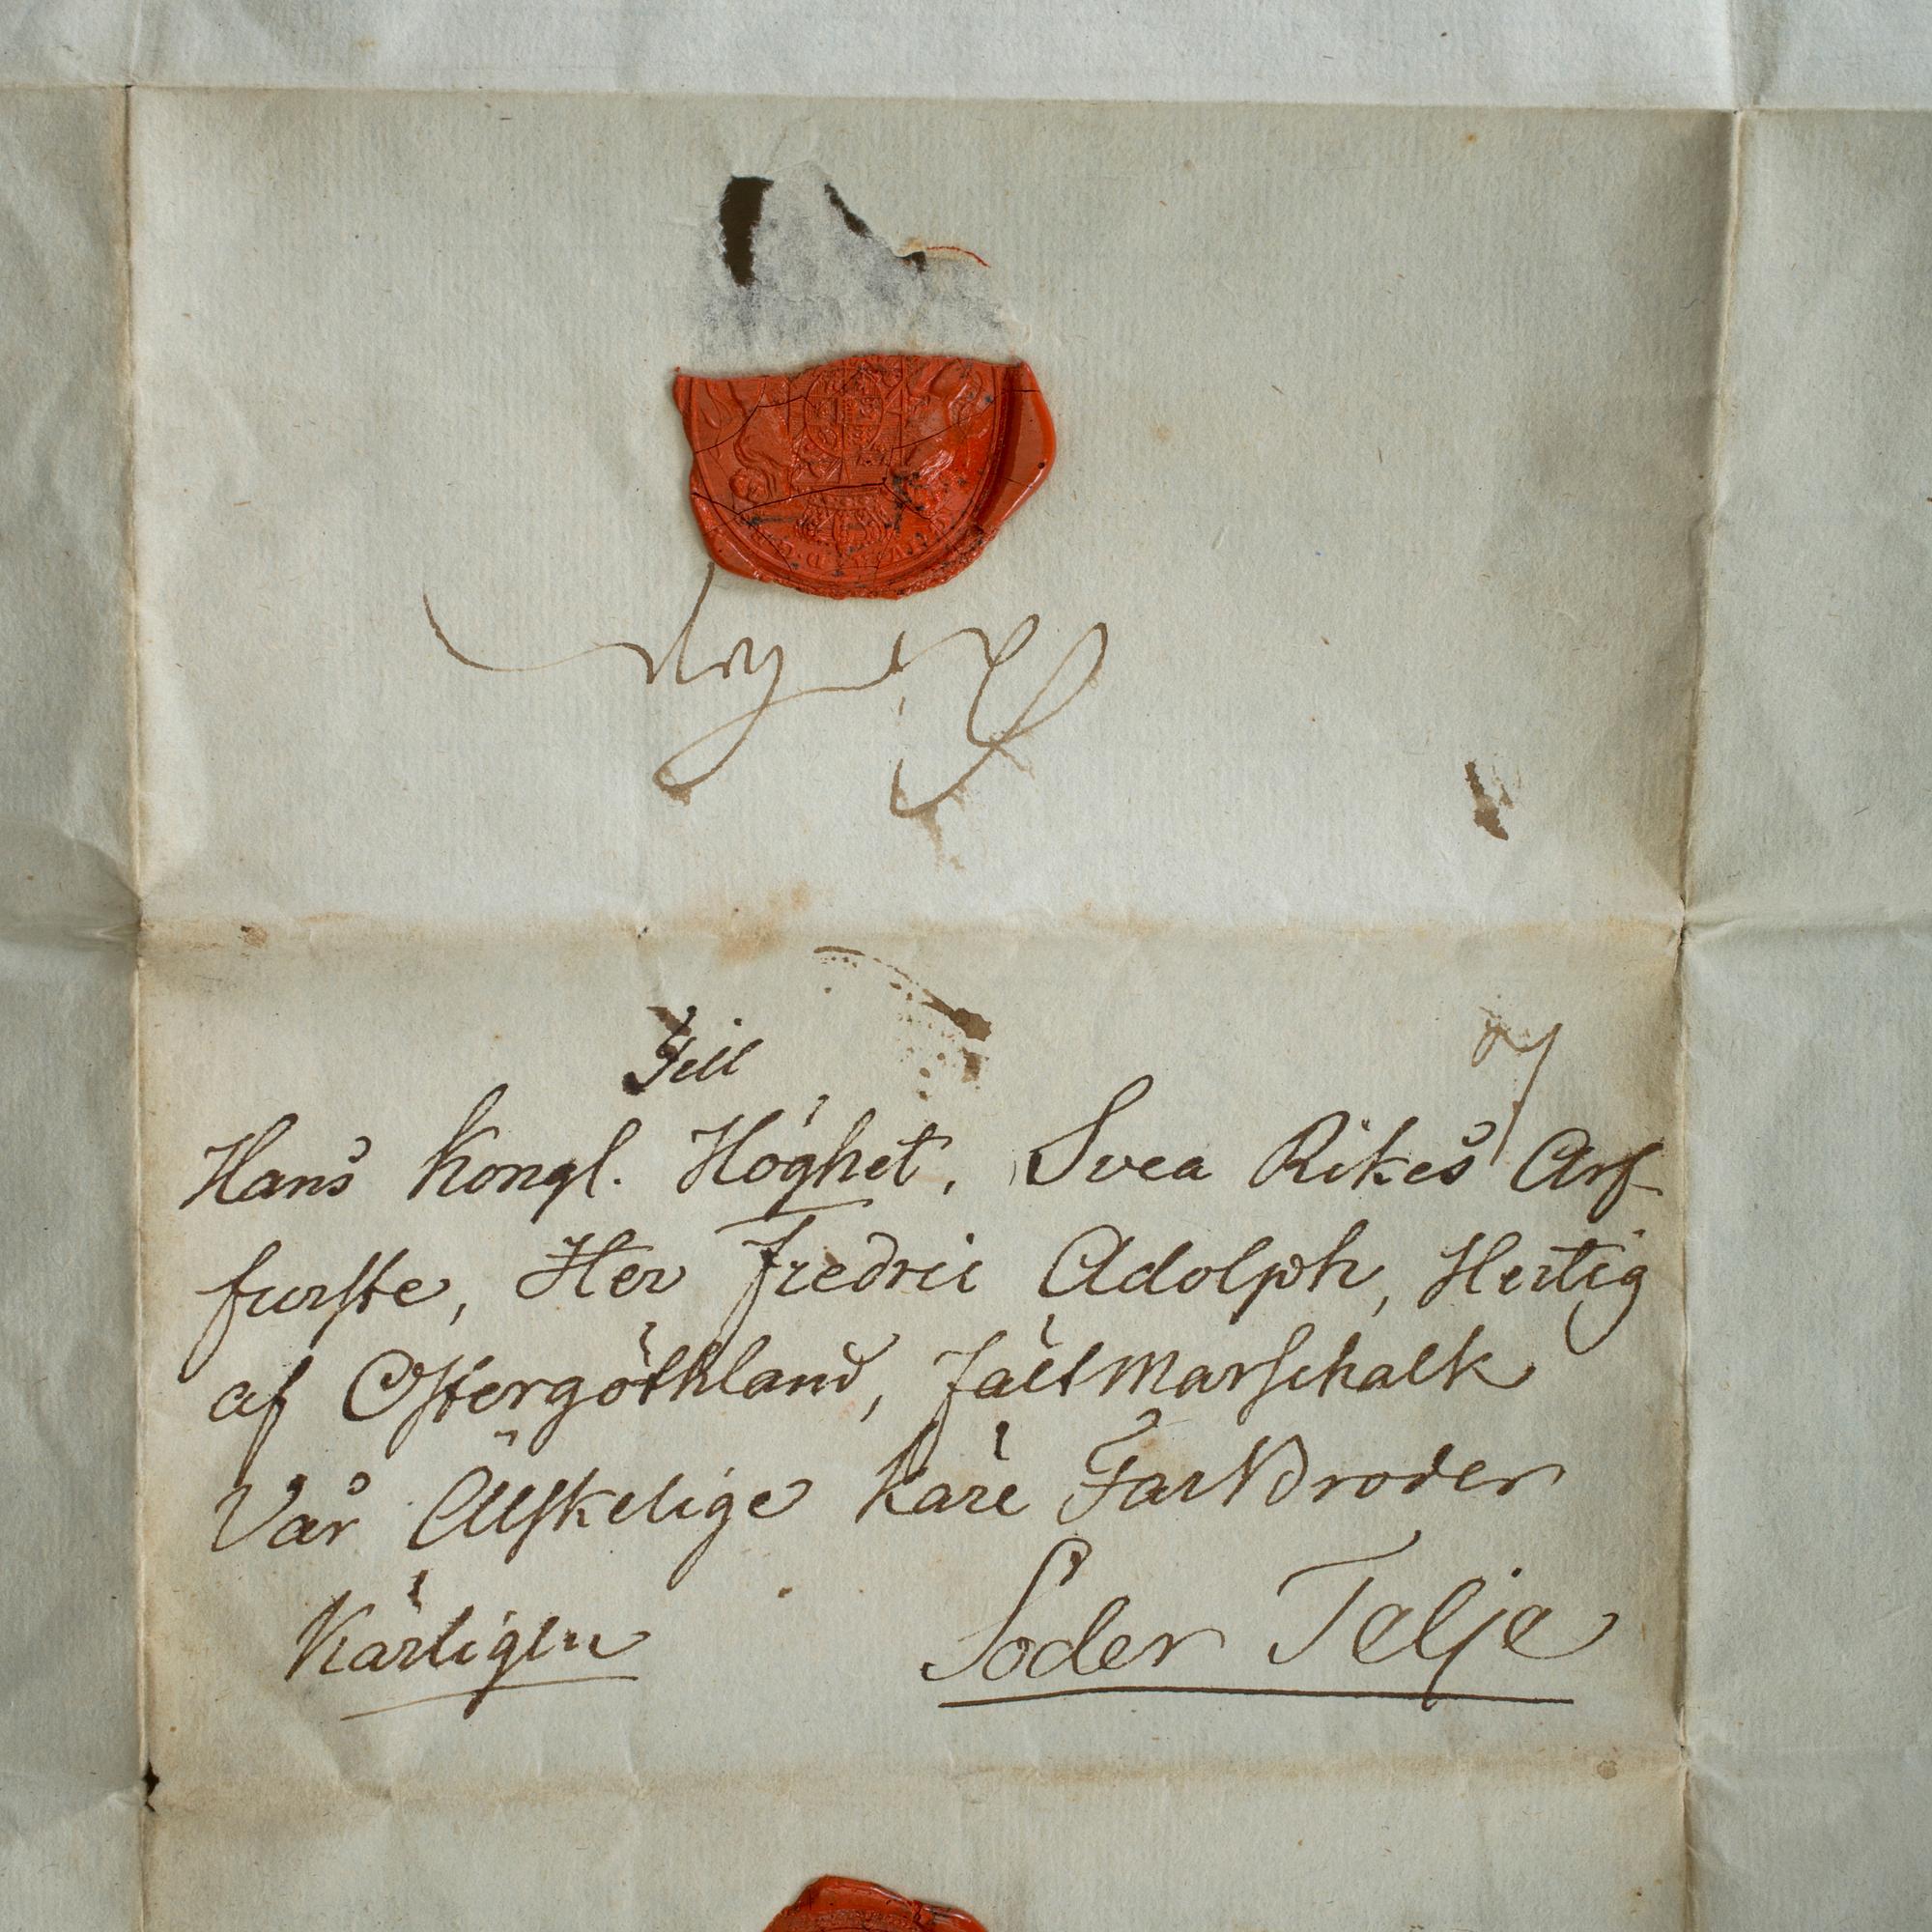 Till
Hans Kongl. Höghet, Svea Rikes Arf-
furste, Her Fredric Adolph, Hertig
af Ostergöthland, Fält Marschalk
Vår Älskelige käre Far Broder
Kärligen
Söder Telje